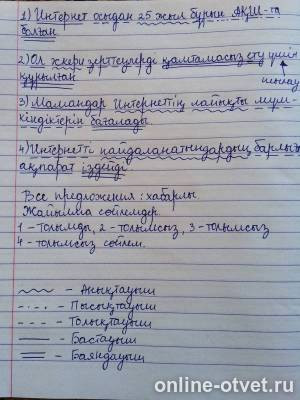 1) Интернет осыдан 25 жыл бұрын АҚШ-та
болған
2) Ол әскери зерттеулерді қамтамасыз ету үшін
құрылған
3) Мамандар Интернеттің лайықты мүм-
кіндіктерін бағалады.
4) Интернетті пайдаланатындардың барлығы
ақпарат іздейді.
Все предложения: хабарлы.
Жайылма сөйлемдер.
1 - Толымды, 2 - толымсыз, 3 - толымсыз
4 - толымсыз сөйлем.
- Анықтауыш
- Пысықтауыш
- Толықтауыш
- Бастауыш
- Баяндауыш
online-otvet.ru